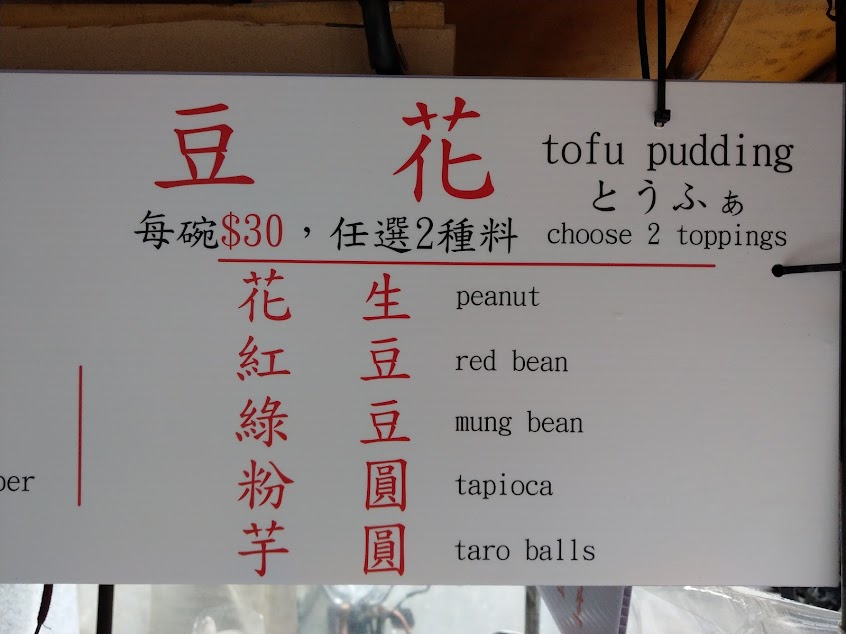 豆花 tofu pudding
とうふぁ
每碗$30，任選2種料 choose 2 toppings
花生 peanut
紅豆 red bean
綠豆 mung bean
粉圓 tapioca
芋圓 taro balls